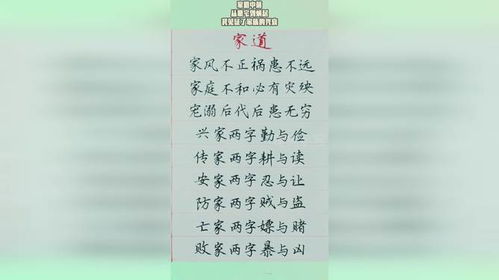 家道中落
家道
家风不正祸患不远
家庭不和必有灾殃
宠溺后代后患无穷
兴家两字勤与俭
传家两字耕与读
安家两字忍与让
防家两字贼与盗
亡家两字嫖与赌
败家两字暴与凶